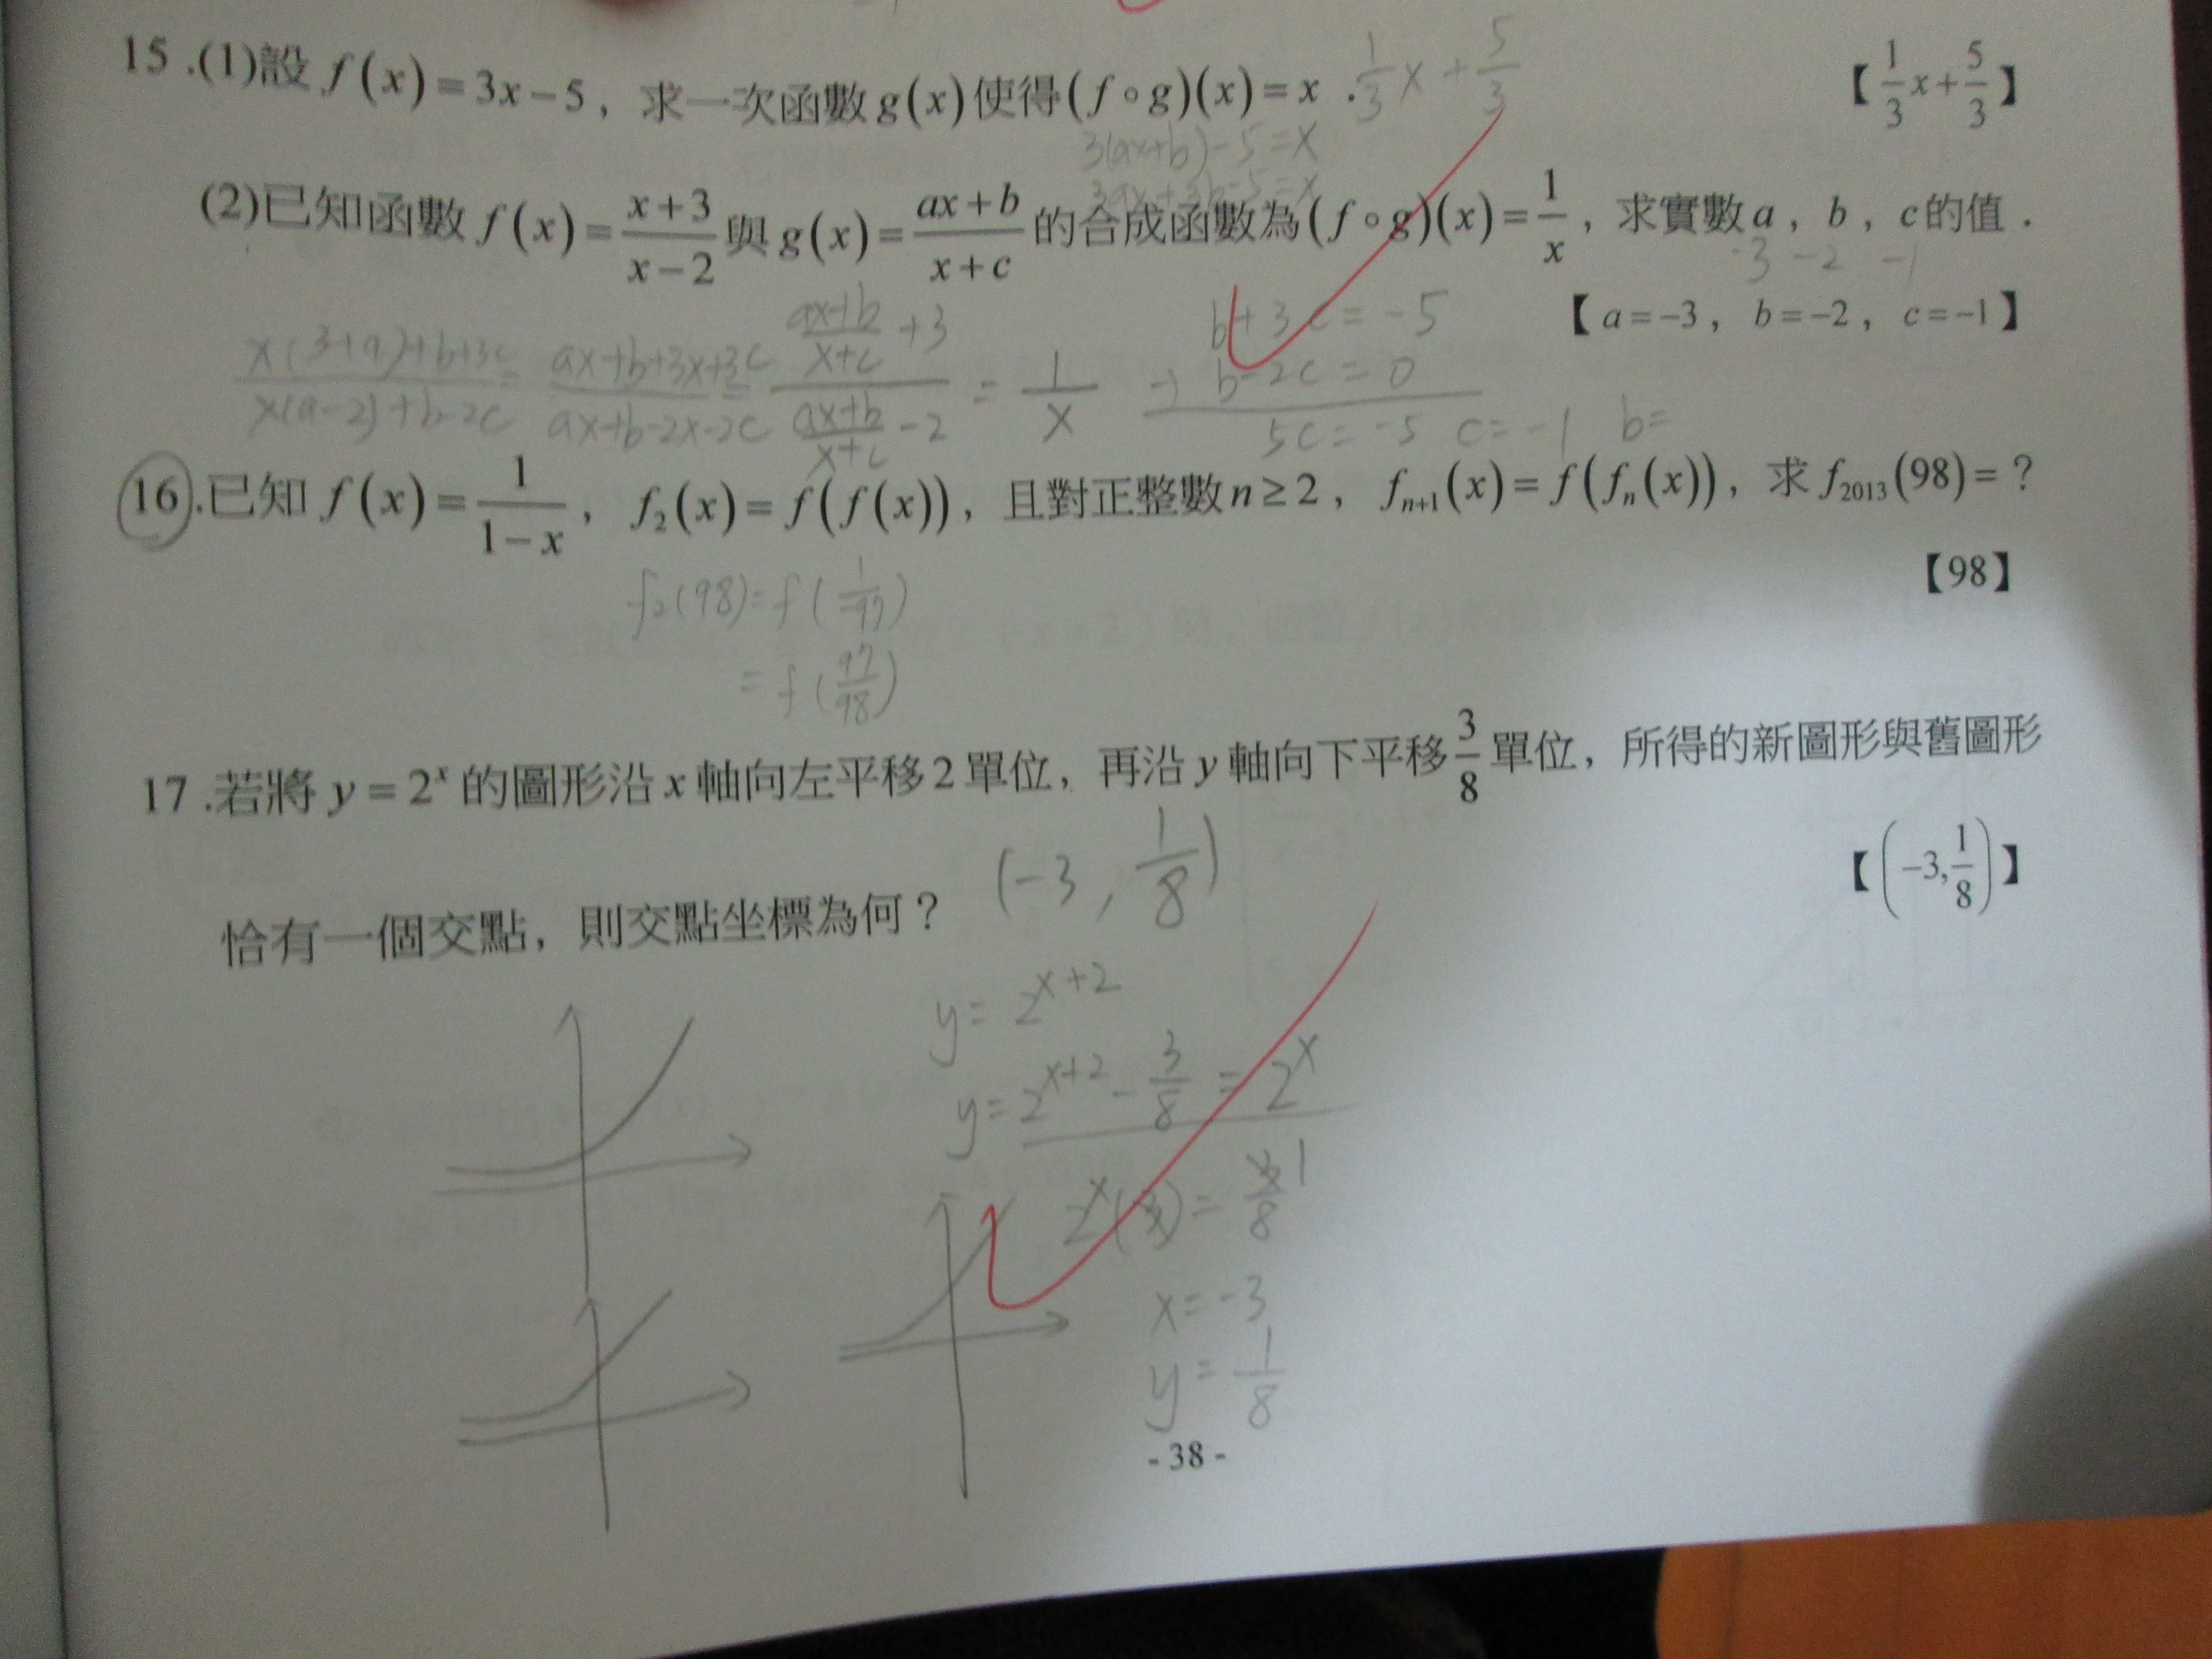 15.(1)設 f(x)=3x-5，求一次函數g(x)使得(f∘g)(x)=x． 1/3 x + 5/3 【1/3 x+5/3】
3(ax+b)-5=x
3ax+3b-5=x
(2)已知函數 f(x)=(x+3)/(x-2) 與 g(x)=(ax+b)/(x+c) 的合成函數為(f∘g)(x)=1/x，求實數a，b，c的值．
-3 -2 -1
【a=-3，b=-2，c=-1】
(x(3+a)+b+3c)/(x(a-2)+b-2c) = (ax+b+3x+3c)/(ax+b-2x-2c) = ((ax+b)/(x+c)+3)/((ax+b)/(x+c)-2) = 1/x
b+3c=-5
-) b-2c=0
5c=-5 c=-1 b=
16.已知 f(x)=1/(1-x)，f₂(x)=f(f(x))，且對正整數n≥2，fₙ₊₁(x)=f(fₙ(x))，求f₂₀₁₃(98)=？
【98】
f₂(98)=f(1/-97)
=f(97/98)
17.若將 y=2ˣ 的圖形沿 x 軸向左平移2單位，再沿 y 軸向下平移3/8單位，所得的新圖形與舊圖形
恰有一個交點，則交點坐標為何？ (-3, 1/8) 【(-3,1/8)】
y=2^(x+2)
y=2^(x+2)-3/8=2^x
x=-3
y=1/8
-38-